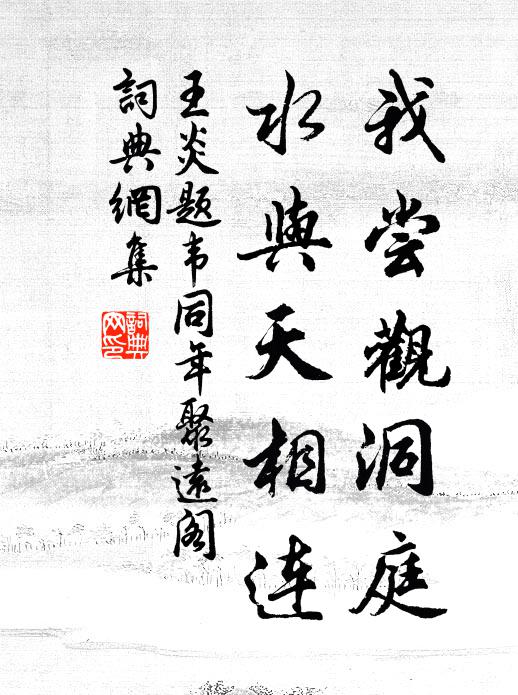 我尝觀洞庭
水與天相連
王炎题韦同年聚遠阁
詞典網集
詞典网印